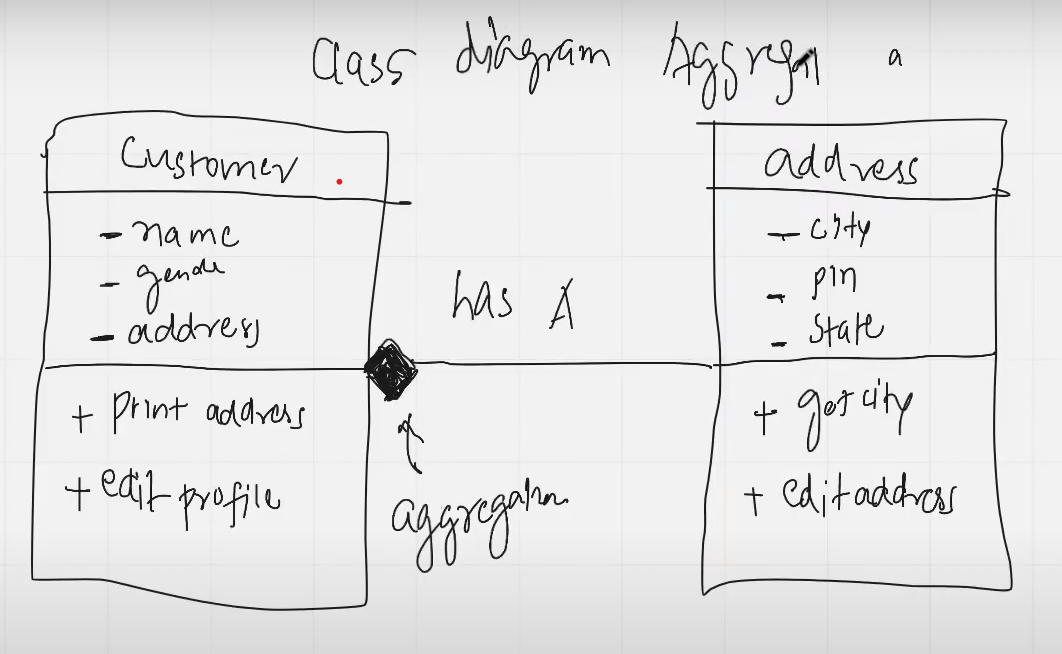 Class diagram Aggregat a
Customer
- name
- gende
- address
+ Print address
+ edit profile
has A
aggregation
address
- city
- pin
- state
+ get city
+ edit address